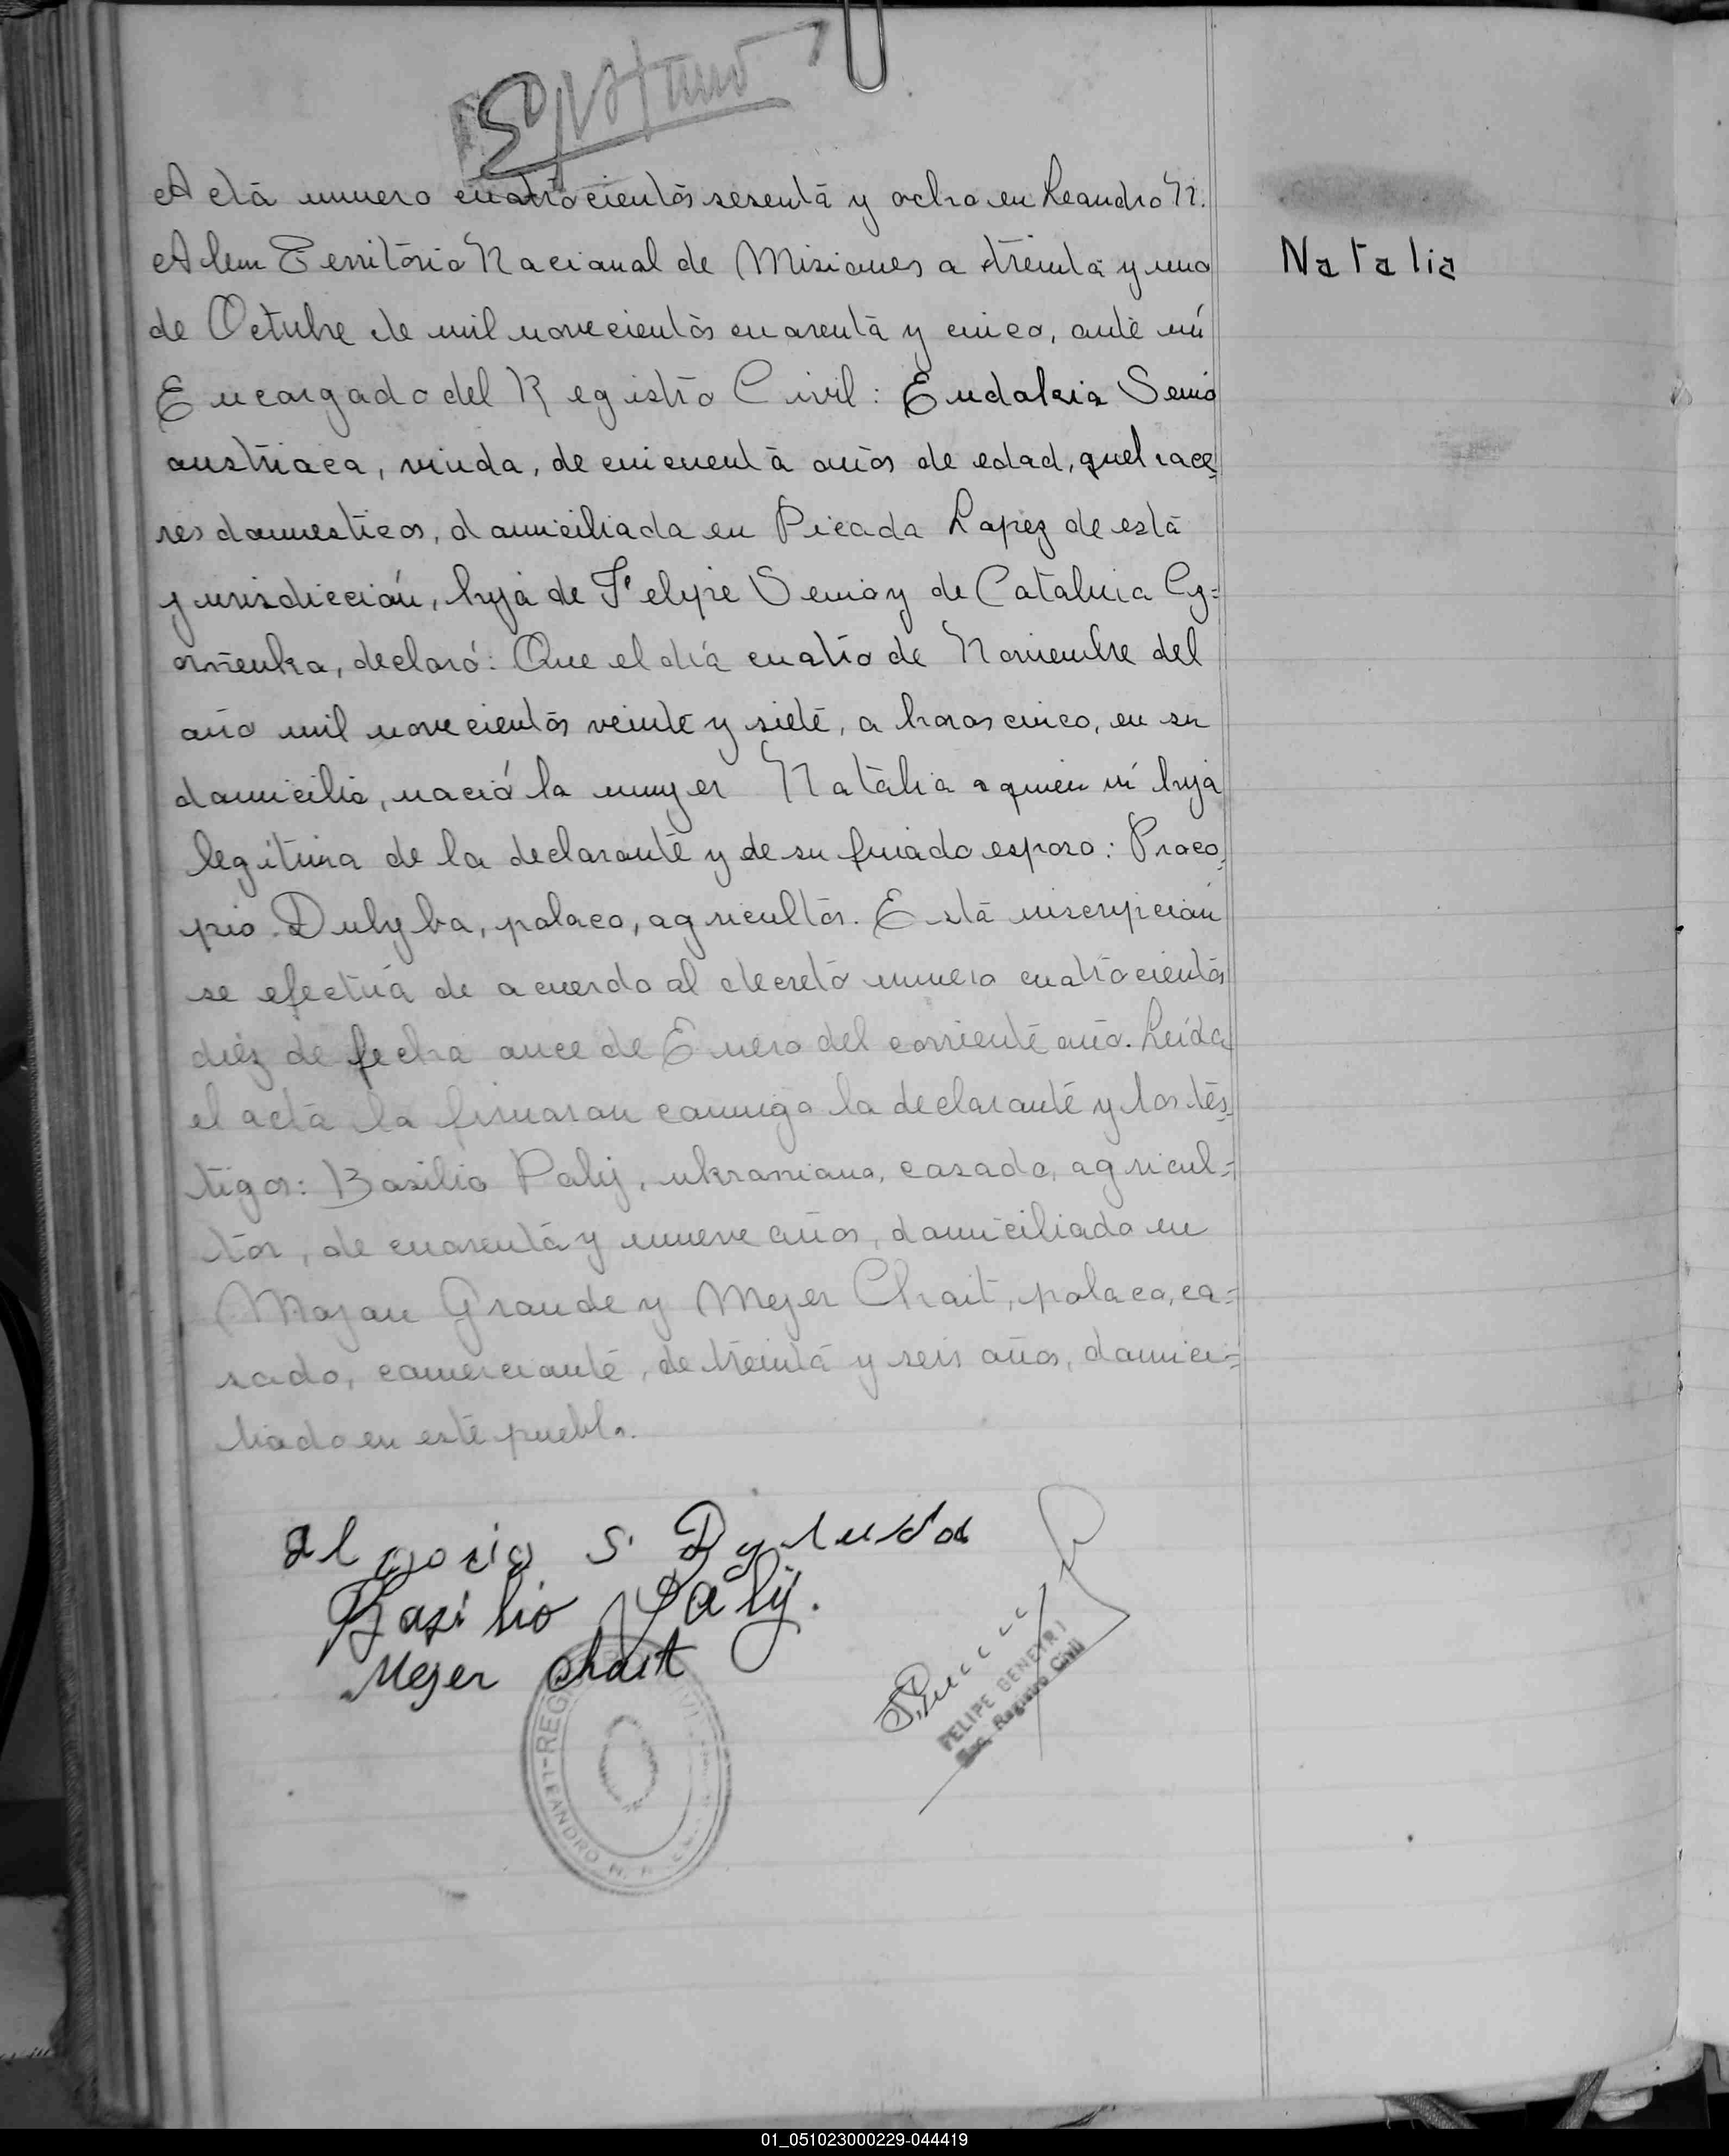 Acta numero cuatrocientos sesenta y ocho en Leandro N.
Alem Territorio Nacional de Misiones a treinta y uno
de Octubre de mil novecientos cuarenta y cinco, ante mí
Encargado del Registro Civil: Eudakia Semio
austriaca, viuda, de cincuenta años de edad, quehace-
res domesticos, domiciliada en Picada Lopez de esta
jurisdicción, hija de Felipe Semio y de Catalina Cy=
orñenka, declaró: Que el día cuatro de Noviembre del
año mil novecientos veinte y siete, a horas cinco, en su
domicilio, nació la mujer Natalia a quien ví hija
legítima de la declarante y de su finado esposo: Proco-
pio Dulyba, polaco, agricultor. Esta inscripción
se efectúa de acuerdo al decreto numero cuatrocientos
diéz de fecha once de Enero del corriente año. Leída
el acta la firmaron conmigo la declarante y los tes-
tigos: Basilio Palij, ukraniano, casado, agricul=
tor, de cuarenta y nueve años, domiciliado en
Mojon Grande y Mejer Chait, polaco, ca=
sado, comerciante, de treinta y seis años, domici=
liado en este pueblo.
Natalia
Bazilio Palij.
Mejer Chait
FELIPE BENEYRI
Enc. Registro Civil
LEANDRO N.
01_051023000229-044419